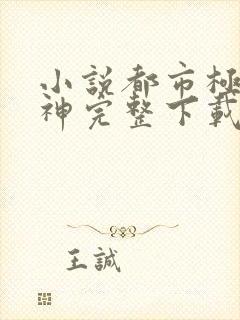 小說都市極
神完整下載
王誠